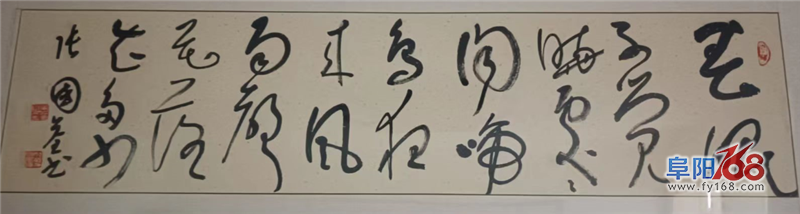 春眠
不觉
晓处々
闻啼
鸟夜
来风
雨声
花落
知多少
张国书
阜阳168
www.fy168.com